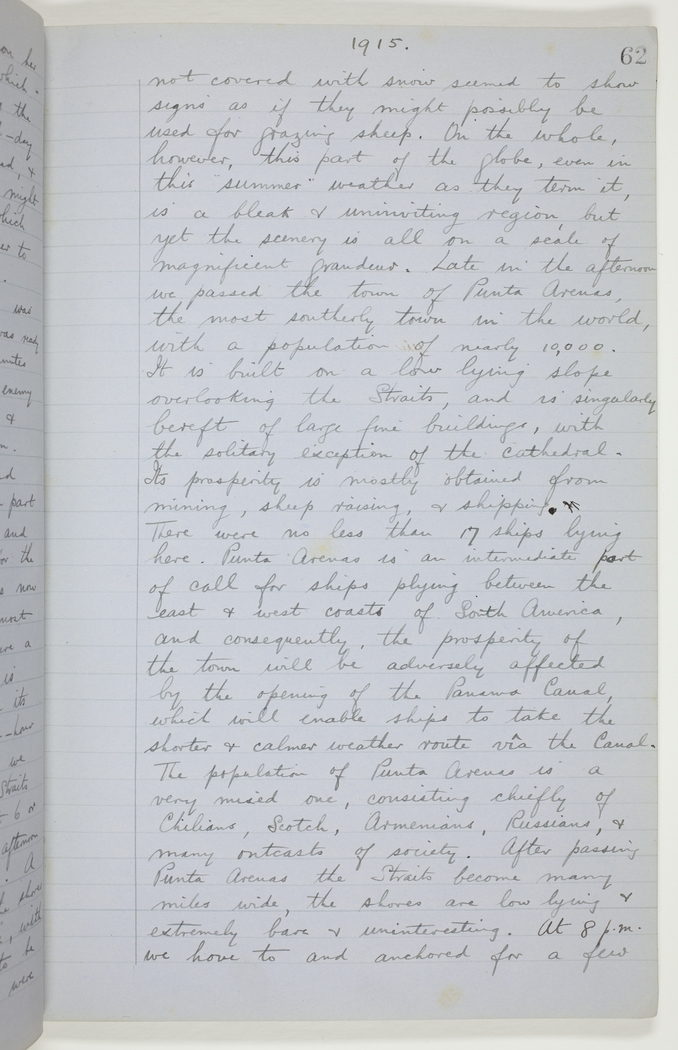 1915.
62
not covered with snow seemed to show
signs as if they might possibly be
used for grazing sheep. On the whole,
however, this part of the globe, even in
this "summer" weather as they term it,
is a bleak & uninviting region, but
yet the scenery is all on a scale of
magnificent grandeur. Late in the afternoon
we passed the town of Punta Arenas,
the most southerly town in the world,
with a population of nearly 10,000.
It is built on a low lying slope
overlooking the Straits, and is singularly
bereft of large fine buildings, with
the solitary exception of the cathedral.
Its prosperity is mostly obtained from
mining, sheep raising, & shipping.
There were no less than 17 ships lying
here. Punta Arenas is an intermediate port
of call for ships plying between the
east & west coasts of South America,
and consequently, the prosperity of
the town will be adversely affected
by the opening of the Panama Canal,
which will enable ships to take the
shorter & calmer weather route via the Canal.
The population of Punta Arenas is a
very mixed one, consisting chiefly of
Chilians, Scotch, Armenians, Russians, &
many outcasts of society. After passing
Punta Arenas the Straits become many
miles wide, the shores are low lying &
extremely bare & uninteresting. At 8 p.m.
we hove to and anchored for a few